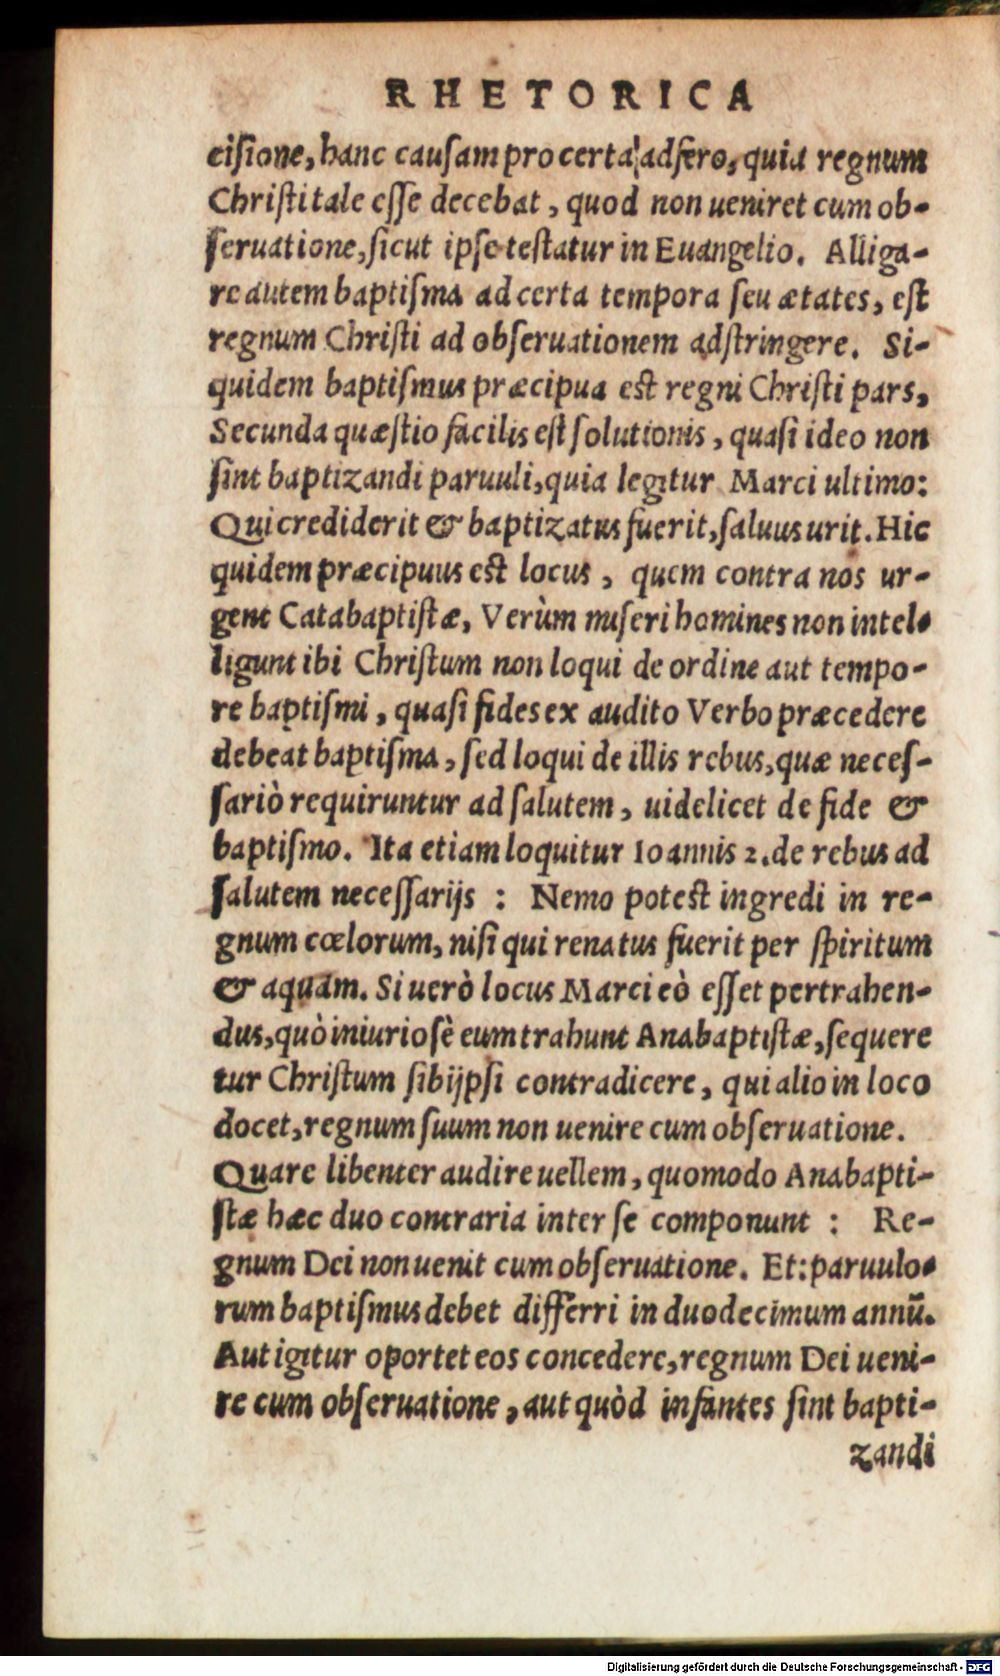 RHETORICA
cisione, hanc causam pro certa adfero, quia regnum
Christi tale esse decebat, quod non ueniret cum ob-
seruatione, sicut ipse testatur in Euangelio. Alliga-
re autem baptisma ad certa tempora seu ætates, est
regnum Christi ad obseruationem adstringere. Si-
quidem baptismus præcipua est regni Christi pars,
Secunda quæstio facilis est solutionis, quasi ideo non
sint baptizandi paruuli, quia legitur Marci ultimo:
Qui crediderit & baptizatus fuerit, saluus urit. Hic
quidem præcipuus est locus, quem contra nos ur-
gent Catabaptistæ, Verùm miseri homines non intel-
ligunt ibi Christum non loqui de ordine aut tempo-
re baptismi, quasi fides ex audito Verbo præcedere
debeat baptisma, sed loqui de illis rebus, quæ neces-
sariò requiruntur ad salutem, uidelicet de fide &
baptismo. Ita etiam loquitur Ioannis 2. de rebus ad
salutem necessarijs : Nemo potest ingredi in re-
gnum cœlorum, nisi qui renatus fuerit per spiritum
& aquam. Si uerò locus Marci eò esset pertrahen-
dus, quò iniuriosè eum trahunt Anabaptistæ, sequere
tur Christum sibijpsi contradicere, qui alio in loco
docet, regnum suum non uenire cum obseruatione.
Quare libenter audire uellem, quomodo Anabapti-
stæ hæc duo contraria inter se componunt : Re-
gnum Dei non uenit cum obseruatione. Et: paruulo-
rum baptismus debet differri in duodecimum annū.
Aut igitur oportet eos concedere, regnum Dei ueni-
re cum obseruatione, aut quòd infantes sint bapti-
zandi
Digitalisierung gefördert durch die Deutsche Forschungsgemeinschaft - DFG